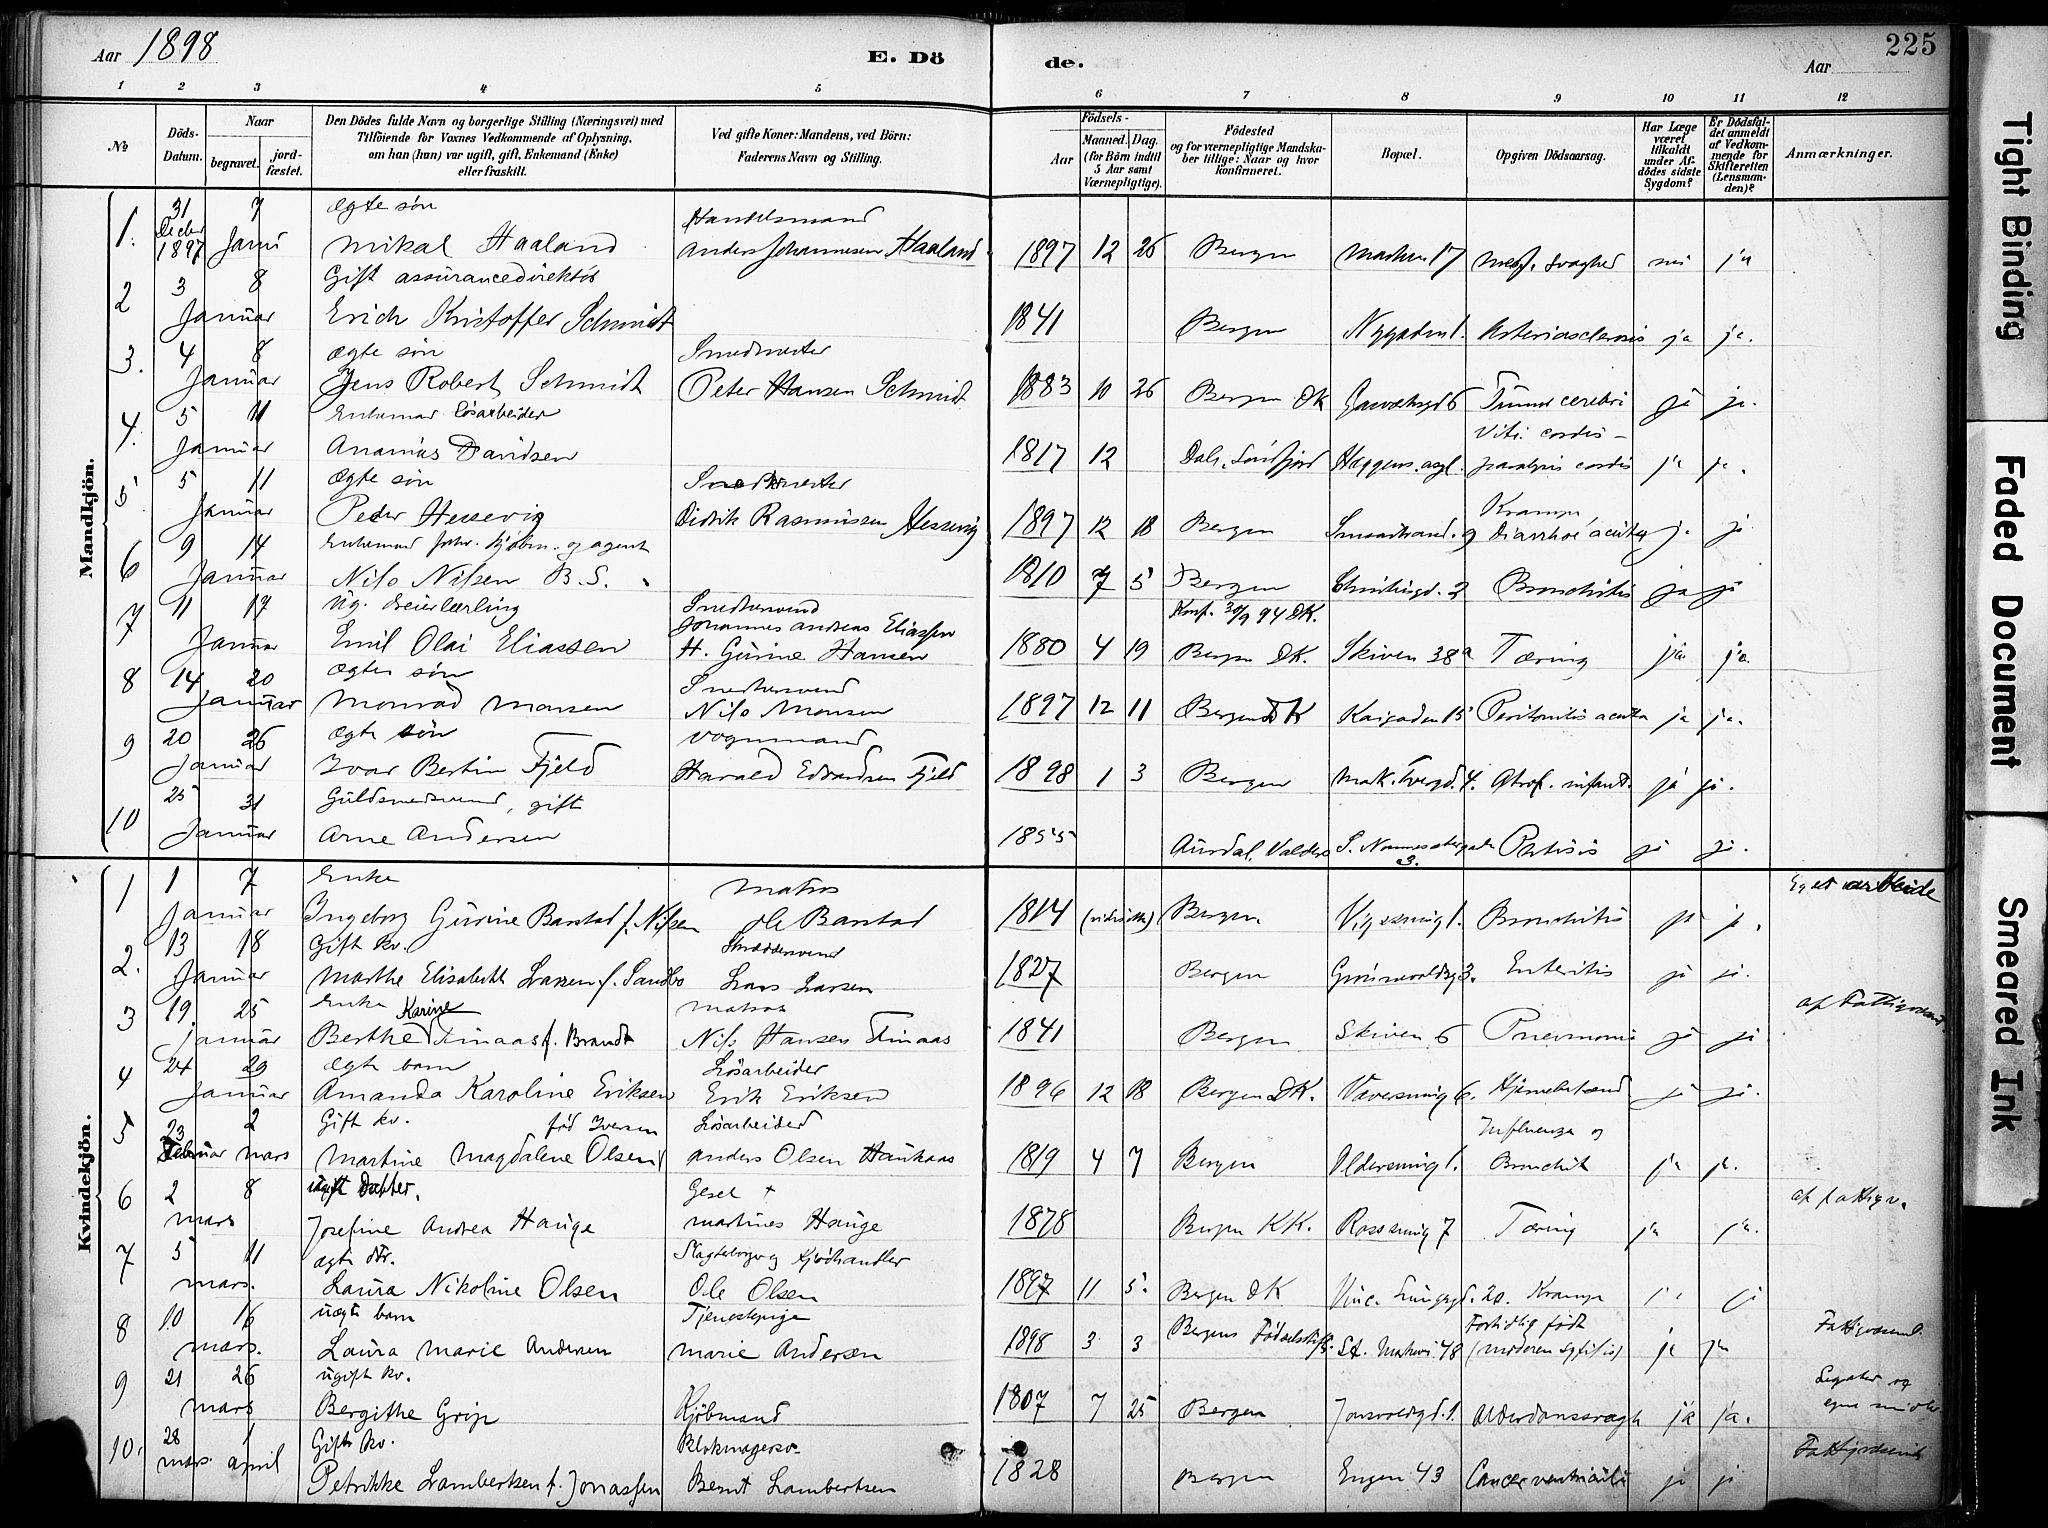 Aar 1898
E. Dö
de.
Aar
225
1 2 3 4 5 6 7 8 9 10 11 12
No
Döds-Datum.
Naar
begravet.
jord-fæstet.
Den Dödes fulde Navn og borgerlige Stilling (Næringsvei) med
Tilföiende for Voxnes Vedkommende af Oplysning,
om han (hun) var ugift, gift, Enkemand (Enke)
eller fraskilt.
Ved gifte Koner: Mandens, ved Börn:
Faderens Navn og Stilling.
Födsels-
Aar
Maaned. Dag.
(for Börn indtil
5 Aar samt
Værnepligtige).
Födested
og for værnepligtige Mandska-
ber tillige: Naar og hvor
konfirmeret.
Bopæl.
Opgiven Dödsaarsag.
Har Læge
været
tilkaldt
under Af-
dödes sidste
Sygdom?
Er Dödsfal-
det anmeldt
af Vedkom-
mende for
Skifteretten
(Lensman-
den)?
Anmærkninger.
Mandkjön.
31 7 Ægte søn Handelsmand
1. Decbr 1897 Janu Mikal Haaland Anders Johannesen Haaland 1897 12 26 Bergen Marken 17 Medf. svaghed nei ja
3 8 Gift assurancedirektør
2 Januar Erich Kristoffer Schmidt 1841 Bergen Nygaden 1. Arteriosclerosis ja ja.
4 8 Ægte søn Smedmester
3. Januar Jens Robert Schmidt Peter Hansen Schmidt 1883 10 26 Bergen DK 6 Tumor cerebri ja ja.
5 11 Enkeman Løsarbeider Viti. cordis –
4. Januar Ananias Davidsen 1817 12 Dale, Søndfjord paralysis cordis ja ja.
5 11 Ægte søn Smedmester Krampe,
5 Januar Peder Hessevig Didrik Rasmussen Hessevig 1897 12 18 Bergen 9 Diarrhoe acuta j. ja
9 14 Enkemand og agent
6 Januar Nils Nilsen B.S. 1810 7 5 Bergen 2 Bronchitis ja ja
11 17 Ug. Dreierlærling Smedsvend Konf. 30/9 94 DK.
Johannes Andreas Eliassen
7 Januar Emil Olai Eliassen H. Gurine Hansen 1880 4 19 Bergen DK. Skiven 38a Tæring ja ja.
14 20 Ægte søn Smedsvend
8 Januar Monrad Monsen Nils Monsen 1897 12 11 Bergen DK Kaigaden 15 Peritonitis acuta ja ja.
20 26 Ægte søn Vognmand
9 Januar Ivar Bertin Fjeld Harald Edvardsen Fjeld 1898 1 3 Bergen Mark. Tvergd. 4. Atrof. infant. ja ja.
25 31 Guldsmedsvend, gift
10 Januar Arne Andersen 1855 Aurdal, Valders 3. Phtisis ja ja.
Kvindekjön.
1 7 Enke Matros Eget arbeide
1 Januar Ingeborg Gurine Barstad f. Nilsen Ole Barstad 1814 Bergen 1. Bronchitis ja ja.
13 18 Gift kv. Skræddersvend
2. Januar Marthe Elisabeth Larsen f. Sandbo Lars Larsen 1827 Bergen 3. Enteritis ja ja.
19 25 Enke Karine Matros af Fattigvæsenet
3 Januar Berthe Finaas f. Brandt Nils Hansen Finaas 1841 Bergen Skiven 6 Pneumoni ja ja
24 29 Ægte barn Løsarbeider
4 Januar Amanda Karoline Eriksen Erik Eriksen 1896 12 18 Bergen DK. Væversmug 6. Hjernebetænd ja ja.
23 2 Gift kv. fød Iversen Løsarbeider Influenza og
5 Februar Mars Martine Magdalene Olsen Anders Olsen Haukaas 1819 4 7 Bergen 1. Bronchit ja ja.
2 8 ugift Datter. Gesel † af fattigv.
6 Mars Josefine Andrea Hauge Martines Hauge 1878 Bergen KK. 7 Tæring ja ja.
5 11 Ægte dtr. og Kjødhandler
7 Mars. Laura Nikoline Olsen Ole Olsen 1897 11 5. Bergen DK 20. Krampe ja ja
10 16 uægte barn Tjenestepige Fortidlig født Fattigvæsenet.
8 Mars. Laura Marie Andersen Marie Andersen 1898 3 3 Bergens Fødselsstift. St. Markevei 48 (moderen syfilis) ja ja
21 26 ugift kv. Legater og
9 Mars Bergithe Grip Kjøbmand 1807 7 25 Bergen 1. Alderdomssvagh ja ja. egne midler
28 1 Gift kv. Blokmagersv. Fattigvæsenet
10. Mars. April Petrikke Lambertsen f. Jonassen Bernt Lambertsen 1828 Bergen Engen 43 Cancer ventriculi ja ja
Tight Binding
Faded Document
Smeared Ink